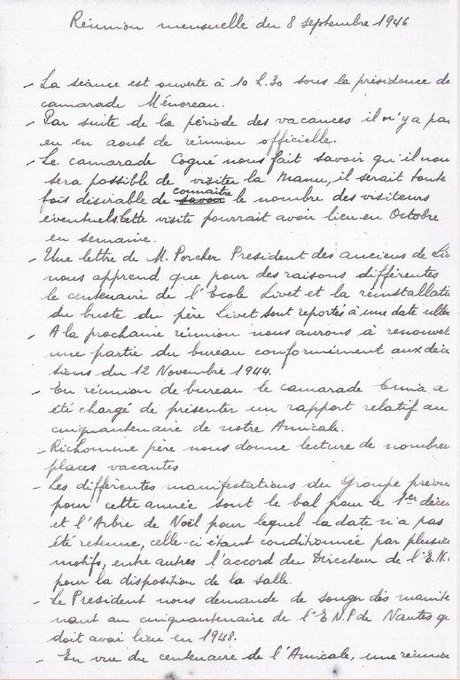 Réunion mensuelle du 8 septembre 1946
- La séance est ouverte à 10 h.30 sous la présidence de
camarade Ménoreau.
- Par suite de la période des vacances il n'y a pas
eu en aout de réunion officielle.
- Le camarade Cogné nous fait savoir qu'il nous
sera possible de visiter la Manu, il serait toute
fois désirable de savoir connaitre le nombre des visiteurs
éventuels cette visite pourrait avoir lieu en Octobre
en semaine.
- Une lettre de M. Porcher President des anciens de
nous apprend que pour des raisons différentes
le centenaire de l'Ecole Livet et la réinstallati
du buste du père Livet sont reportés à une date ulté
- A la prochaine réunion nous aurons à renouvel
une partie du bureau conformément aux déci
sions du 12 Novembre 1944.
- En réunion de bureau le camarade a
été chargé de présenter un rapport relatif au
cinquantenaire de notre Amicale.
- Richomme père nous donne lecture de nombreu
places vacantes
- Les différentes manifestations du Groupe prévu
pour cette année sont le bal pour le 1er déce
et l'Arbre de Noël pour lequel la date n'a pas
été retenue, celle-ci étant conditionnée par plusieu
motifs, entre autres l'accord du Directeur de l'E.N.
pour la disposition de la salle.
- Le President nous demande de songer dès mainte
nant au cinquantenaire de l'E.N.P de Nantes q
doit avoi lieu en 1948.
- En vue du centenaire de l'Amicale, une réunion